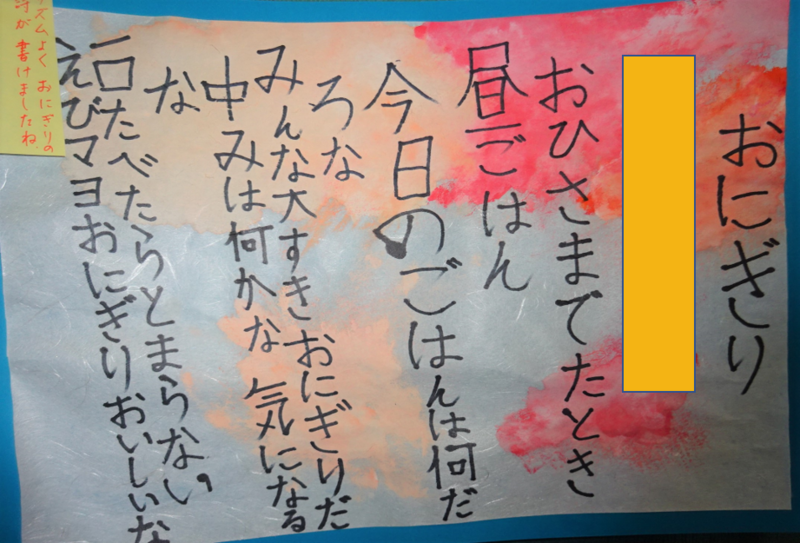 おにぎり
おひさまでてたとき
昼ごはん
今日のごはんは何だ
ろな
みんな大すきおにぎりだ
中みは何かな 気になる
な
一口たべたらとまらない
えびマヨおにぎりおいしいな
ズムよく おにぎりの
が 書けましたね